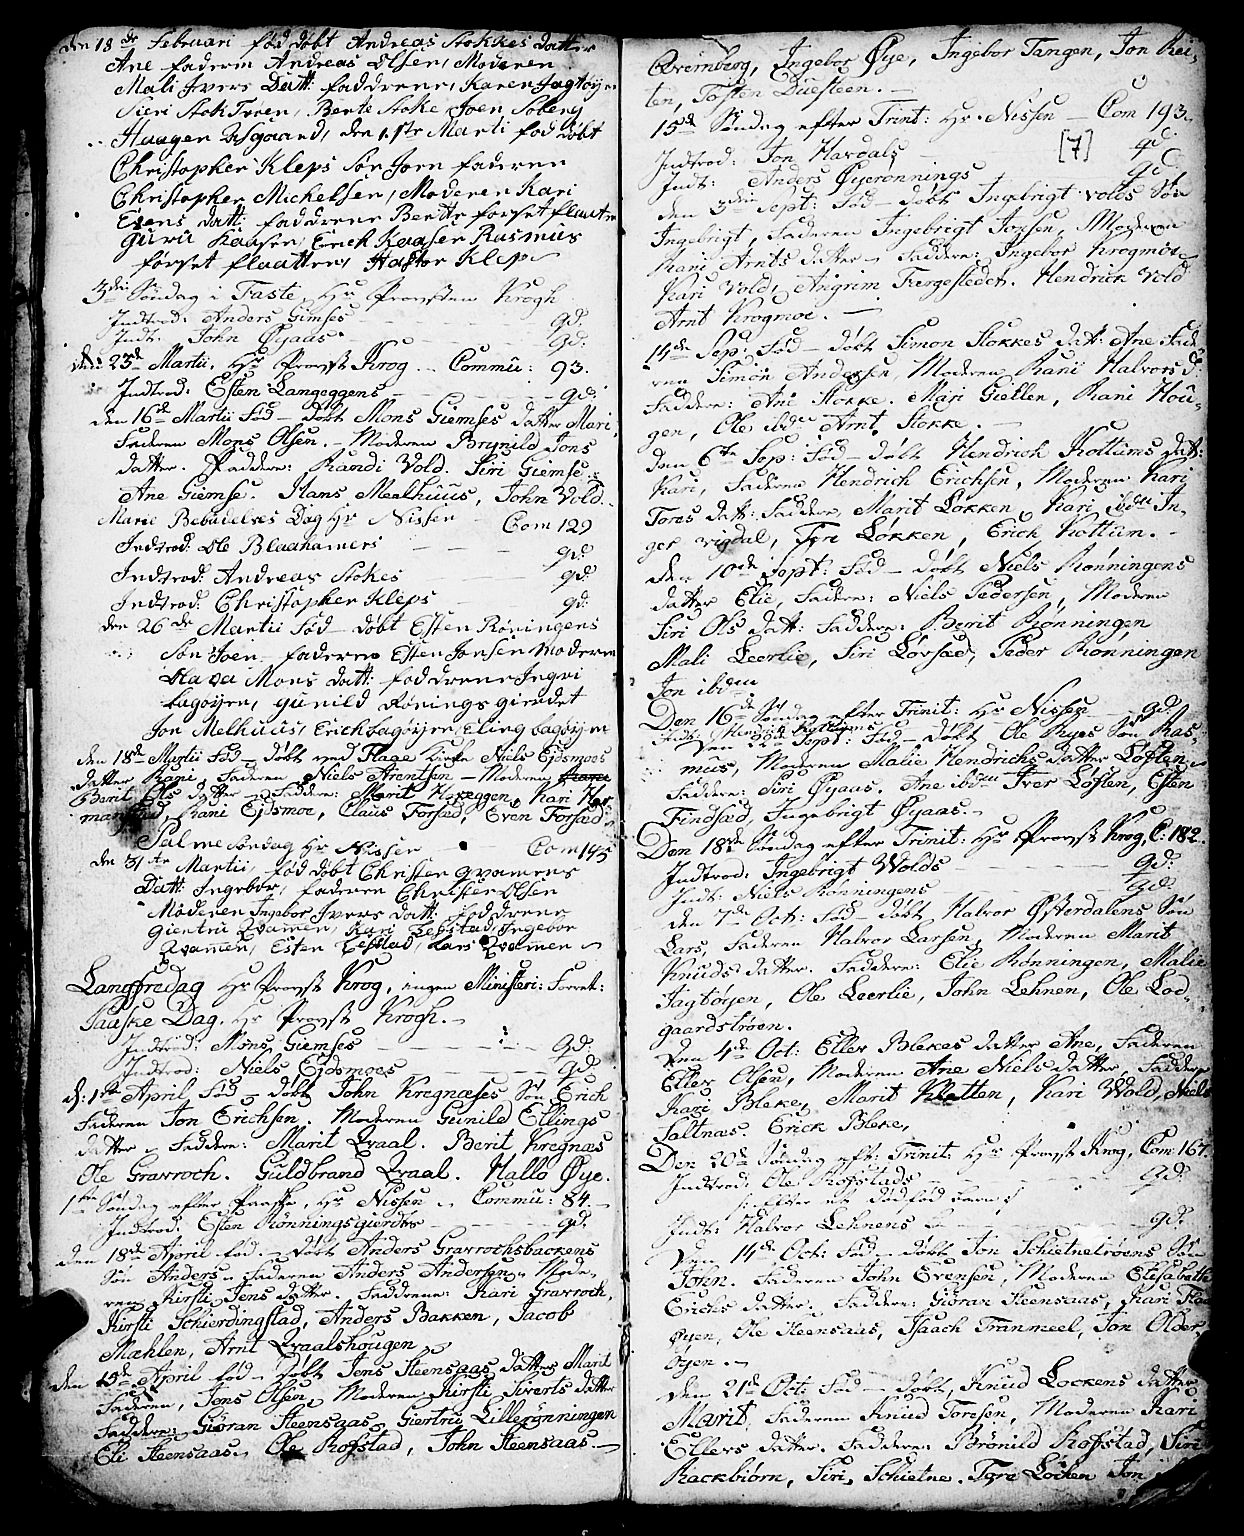 den 18de Februari fød døbt Andreas Stokkes datter
Ane faderin Andreas Olsen, Moderen
Mali Ivers Datt: faddrene, Karen Jagtøyen
Sieri Stoktroen, Bente Stoke Joen Soberg
Haagen Aasgaard, den 1.ste Marti fød døbt
Christopher Kleps Søn Joen faderen
Christopher Mickelsen, Moderen Kari
Evens datt: faddrene Berette forset flaatten
Guru Kaasen, Erich Kaasen Rasmus
forset flaatten, Hastor Klep
3die Søndag i Faste, Hr Provsten Krogh
Indtrod: Anders Gimses qd.
Indt. John Øyaas qd.
den 23de Martii, Hr Provst Krog Commu: 93.
Indtrod: Esten Langeggens qd:
den 16de Martii Fød – døbt Mons Giemses datter Mari,
Faderen Mons Olsen. – Moderen Brynild Jons
datter. Faddere: Randi Vold. Siri Giemse
Ane Giemse. Hans Mealhuus, John Vold.
Marie Bebudelses Dag Hr Nissen Com 129
Indtrod: Ole Blaahamers qd:
Indtrod: Andreas Stokes qd:
Indtrod: Christopher Kleps qd:
den 26de Martii Fød – døbt Esten Røningens
Søn Joen – faderen Esten Jonsen Moderen
Mons datt: faddrene Ingri
bagøyen, gunild Rønings giredet
Jon Melhuus, Erich bagøyen, Eling bagøyen
den 18de Martii Fød – døbt ved Flaae Kirke Niels Ejdsmoes
datter Kari, Faderen Niels Arentsen – Moderen
Berit Ols datter – Faddere: Marit Hageggen, Kari Her
Kari Ejdsmoe, Claus Forsæd, Even Forsæd
Palme Søndag Hr Nissen Com 145
den 31te Martii, fød døbt Christen qvamens
Datt: Ingebor, faderen Christen Olsen
Moderen Ingebor Ivers datt: faddrene
Giertru Qvamen, Kari Lefstad, Ingebor
Qvamen, Esten Lefstad, Lars Qvamen
Langfredag Hr Provst Krog, ingen Ministeri: Forret:
Paaske Dag. Hr Provst Krogh.
Indtrod: Mons Giemses qd.
Indtrod: Niels Ejdsmoes qd
d: 1ste April Fød – døbt John Kregnæses Søn Erich
Faderen Jon Erichsen. Moderen Gunild Ellings
datter – Faddere: Marit Qvaal. Berit Kregnæs
Ole Gravroch. Guldbrand Qvaal. Hallo Øye.
1ste Søndag efter Paaske, Hr Nissen Commu: 84.
Indtrod: Esten Rønningsgierdes qd.
den 18de April fød – døbt Anders Gravrochsbackens
Søn Anders – Faderen Anders Andersen – Mode-
ren Kirsti Jens datter. Faddrene: Kari Gravroch,
Kirsti Schierdingstad, Anders Bakken, Jacob
Mæhlen, Arnt Qvaalshougen
den 19de April fød – døbt Jons Steensaas datter Marit
Faderen, Jons Olsen, Moderen Kirsti Siverts datter
Faddere: Giøran Steensaas, Giertru Lillerønningen
Eli Steensaas, Ole Rofstad, John Steensaas.
Qvernberg, Ingebor Øye, Ingebor Tangen, Jon Rei-
ten, Tosten Duesteen.
15de Søndag efter Trint: Hr Nissen – Com 193.
[7]
Indtrod: Jon Hardals qd
Indt: Anders Øyerønnings qd
den 3die Sept: Fød – døbt Ingebrigt Volds Søn
Ingebrigt, Faderen Ingebrigt Jonsen, Moderen
Kari Arnts datter – Faddere: Ingebor Krogmoe
Kari Vold, Angrim Fergestedet. Hendrick Vold
Arnt Krogmoe.
14de Sep: Fød – døbt Simon Stokkes dat: Ane Fade
ren Simon Andersen, Moderen Kari Halvors d:
Faddere: Ane Stokke. Mari Giellen, Kari Hou-
gen, Ole ibdm Arnt Stokke.
den 6te Sep: Fød – døbt Hendrich Kottums datt:
Kari, Faderen Hendrich Erichsen, Moderen Kari
Tores datt: Faddere, Marit Løkken, Kari ibdm In-
ger Vigdal, Tore Løkken, Erich Kottum.
den 10de Sept: Fød – døbt Niels Rønningens
datter Elie, Faderen: Niels Pedersen, Moderen
Siri Ols datt: Faddere: Berit Rønningen
Mali Leerlie, Siri Lørsæd, Peder Rønningen
Jon ibdm
Den 16de Søndag efter Trinit: Hr Nissen qd
Indt: Hendrich Kottums
den 22de Sept: Fød – døbt Ole Ryes Søn Ras-
mus, Moderen Malie Hendrichs datter Løften
Faddere: Siri Øyaas. Ane ibdm Iver Løften, Esten
Findsæd, Ingebrigt Øyaas.
Den 18de Søndag efter Trinit: Hr Provst Krog, C: 182.
Indtrod: Ingebrigt Wolds qd:
Indt: Niels Rønningens qd.
den 7de Oct: Fød – døbt Halvor Østerdalens Søn
Lars, Faderen Halvor Larsen, Moderen Marit
Knuds datter. Faddere: Elie Rønningen, Malie
Jagtøyen, Ole Leerlie, John Lehnen, Ole Lod-
gaardstrøen.
Den 4de Oct: Eller Blekes datter Ane, Faderen
Eller Olsen, Moderen Ane Niels datter, Faddere
Kari Bleke, Marit Kletten, Kari Wold, Niels
Saltnæs. Erick Bleke,
Den 20de Søndag eft: Trinit: Hr Provst Krog, Com: 167.
Indtrod: Ole Rofstads qd:
/: efter et dødfød barn :/
Indt: Halvor Lehnens qd.
Den 14de Oct: Fød – døbt Jon Schietnetrøens Søn
John. Faderen John Evensen, Moderen Elisabeth
Erichs datter. Faddere: Giøran Steensaas, Kari
øyen, Ole Steensaas, Isaach Tranmeel, Jon Older
øyen.
den 21de Oct: Fød – døbt, Knud Lockens datter
Marit, Faderen Knud Toresen, Moderen Kari
Ellers datter. Faddere: Brønild Rofstad, Siri
Rackbiørn, Siri Schietne. Tore Løcken Jon